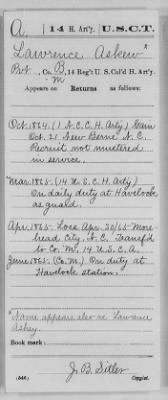 A. | 14 H. Art'y. | U.S.C.T.
Lawrence Askew *
Pvt, Co. B, 14 Reg't U.S. Col'd H. Art'y.
M
Appears on Returns as follows:
Oct. 1864. (1 N.C.C.H. Art'y) Gain
Oct. 21 New Berne N.C.
Recruit not mustered
in service.
Mar. 1865. (14 U.S.C.H. Art'y)
On daily duty at Havelock
as guard.
Apr. 1865. Loss Apr. 30/65 More-
head City, N.C. Transf'd
to Co. M, 14 U.S.C.A.
June 1865. (Co. M.) On duty at
Havelock Station.
*Name appears also as Lawrence
Askey.
Book mark:
J. B. Sitler
(546) Copyist.